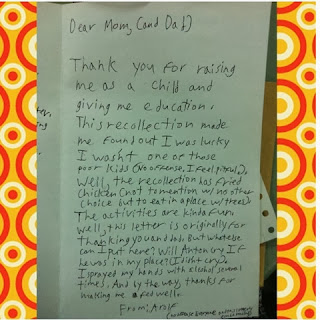 Dear Mom, (and Dad)
Thank you for raising
me as a child and
giving me education.
This recollection made
me found out I was lucky
I wasn't one of those
poor kids (No offense, I feel pitiful).
Well, the recollection has fried
chicken (not to mention w/ no other
choice but to eat in a place w/ trees).
The activities are kinda fun.
Well, this letter is originally for
thanking you and dad. But what else
can I put here? Will Anton cry if
he was in my place? (I didn't cry).
I sprayed my hands with alcohol several
times. And by the way, thanks for
making me a fed well.
From: